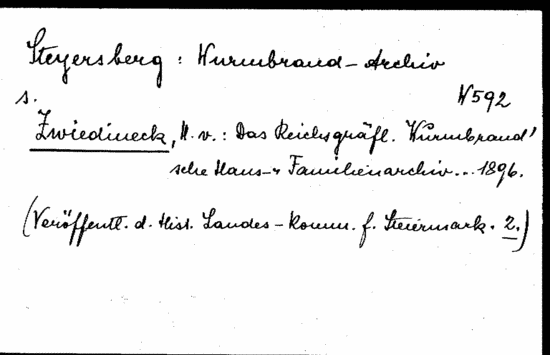 Steyersberg : Wurmbrand-Archiv
s. W592
Zwiedineck, H. v.: Das Reichsgräfl. Wurmbrand'
sche Haus- u Familienarchiv... 1896.
(Veröffentl. d. Hist. Landes-Komm. f. Steiermark. 2.)